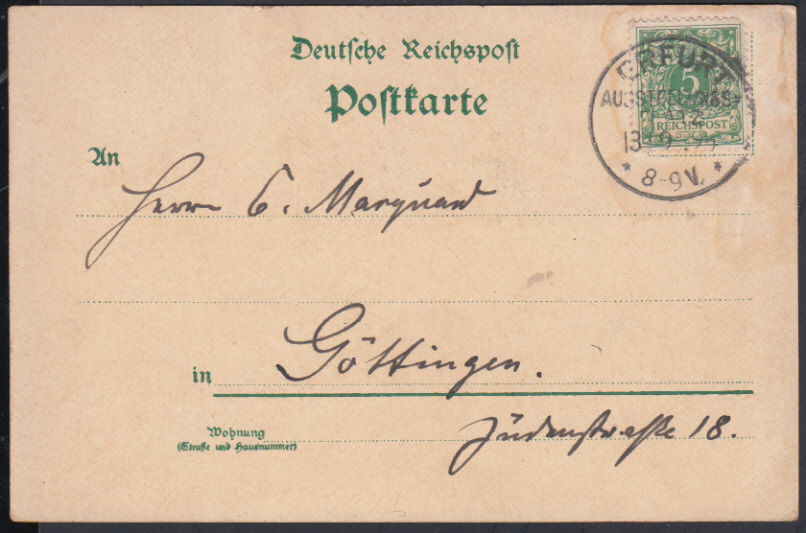 Deutsche Reichspost
Postkarte
ERFURT
AUSSTELLUNGS-
PL.
13 9 94
* 8-9 V. *
5
REICHSPOST
An
Herrn C. Marquand
in Göttingen.
Jüdenstraße 18.
Wohnung
(Straße und Hausnummer)